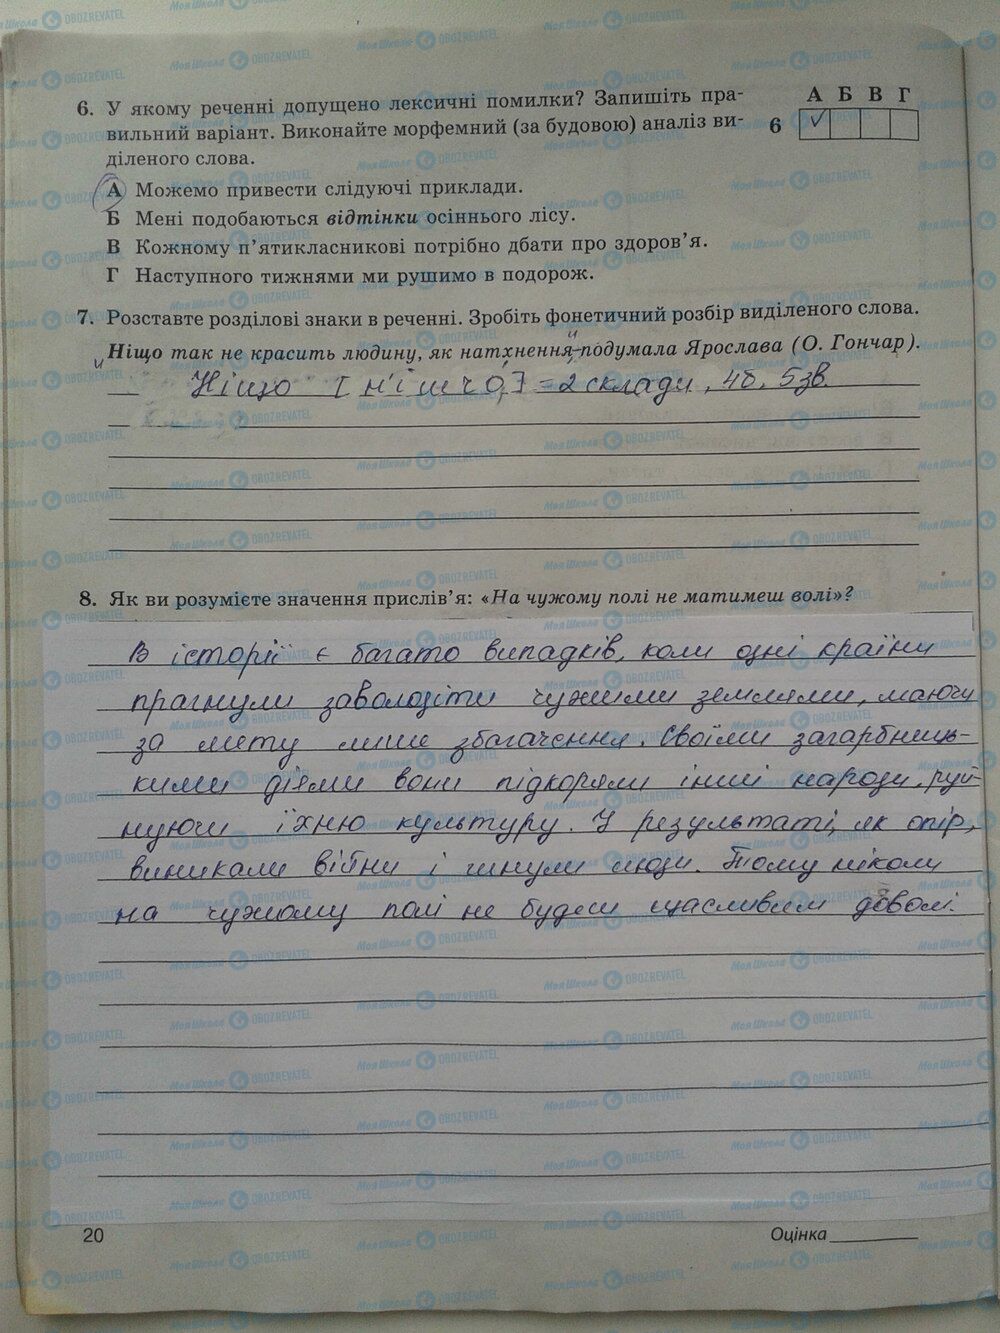 6. У якому реченні допущено лексичні помилки? Запишіть пра-
вильний варіант. Виконайте морфемний (за будовою) аналіз ви-
діленого слова.
А Б В Г
6 ✓
А Можемо привести слідуючі приклади.
Б Мені подобаються відтінки осіннього лісу.
В Кожному п’ятикласникові потрібно дбати про здоров’я.
Г Наступного тижнями ми рушимо в подорож.
7. Розставте розділові знаки в реченні. Зробіть фонетичний розбір виділеного слова.
„Ніщо так не красить людину, як натхнення”,-подумала Ярослава (О. Гончар).
Ніщо [н'ішчо́] = 2 склади, 4б, 5зв.
8. Як ви розумієте значення прислів’я: «На чужому полі не матимеш волі»?
В історії є багато випадків, коли одні країни
прагнули заволодіти чужими землями, маючи
за мету лише збагачення. Своїми загарбниць-
кими діями вони підкоряли інші народи, руй-
нуючи їхню культуру. У результаті, як опір,
виникали війни і гинули люди. Тому ніколи
на чужому полі не будеш щасливим доволі.
20
Оцінка
Моя Школа OBOZREVATEL